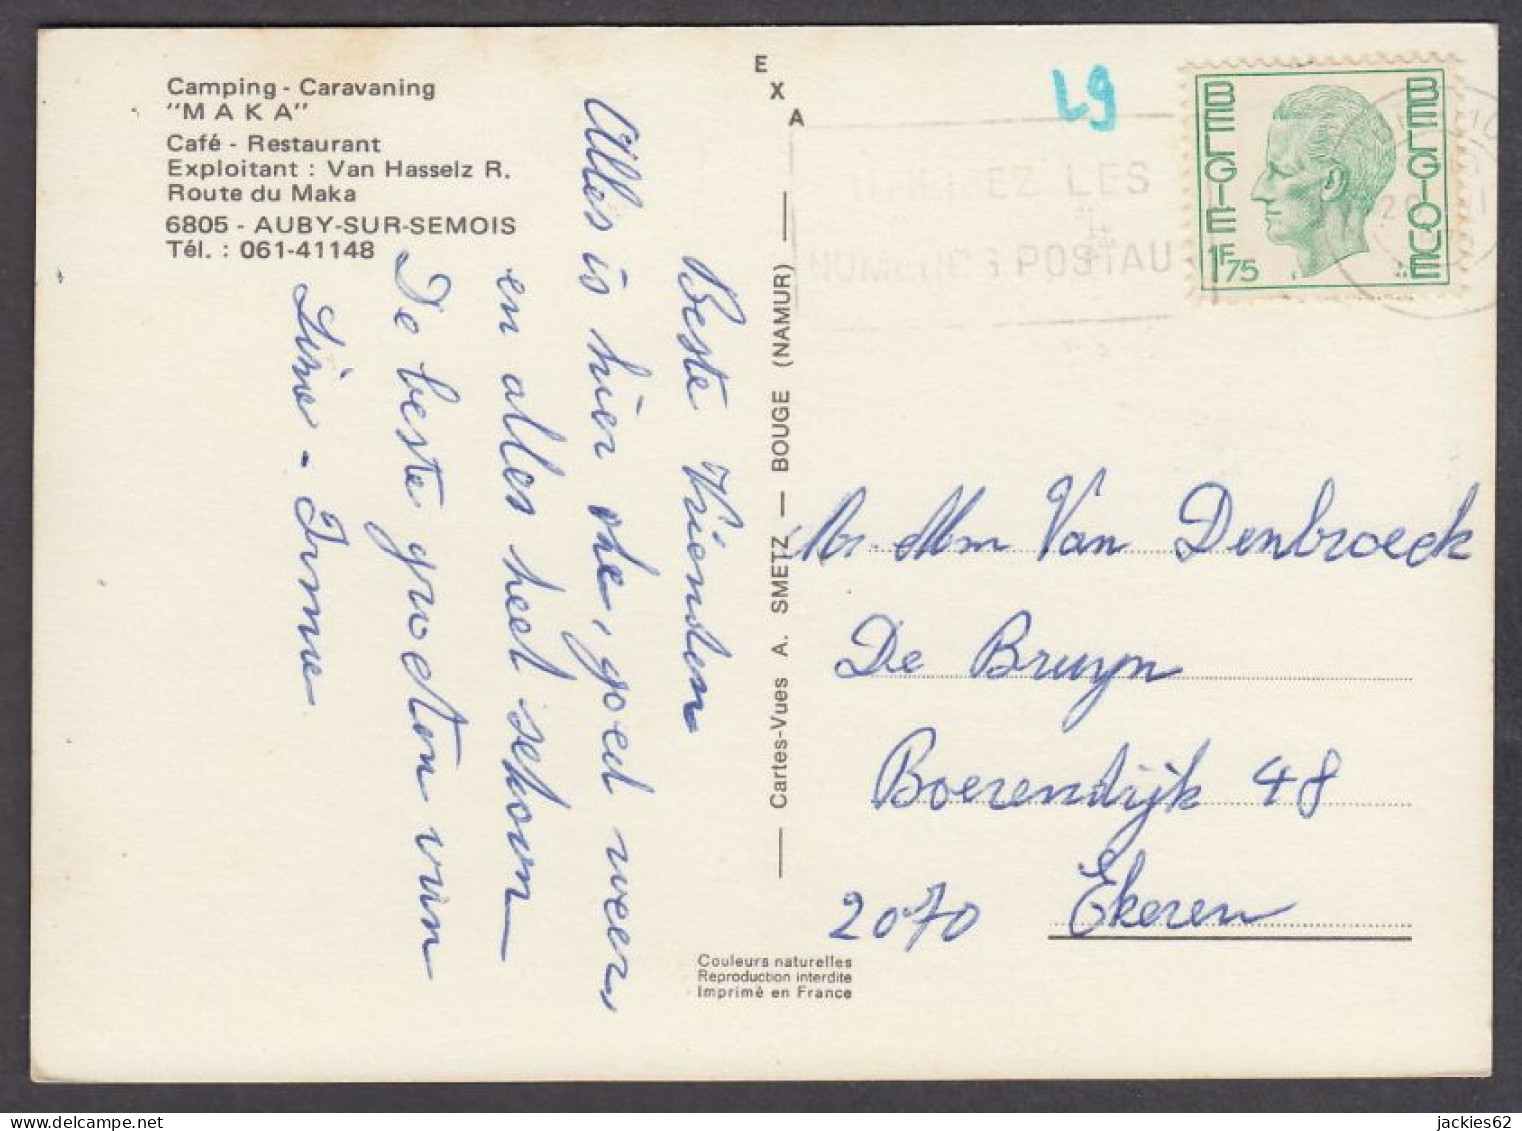 Camping - Caravaning
"MAKA"
Café - Restaurant
Exploitant : Van Hasselz R.
Route du Maka
6805 - AUBY-SUR-SEMOIS
Tél. : 061-41148
EXA
L9
BELGIE
BELGIQUE
1F75
LES
NUMEROS POSTAU
Beste Vrienden
Alles is hier oke, goed weer,
en alles heel schoon
De beste groeten van
Irma
Cartes-Vues A. SMETZ — BOUGE (NAMUR)
Mr. Mm Van Denbroeck
De Bruyn
Boerendijk 48
2070 Ekeren
Couleurs naturelles
Reproduction interdite
Imprimé en France
jackies62